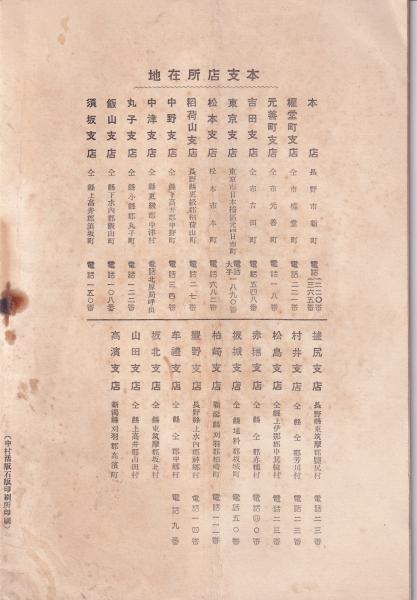 本支店所在地
本店 長野市新町 電話二二〇番 一三六五番
權堂町支店 仝市權堂町 電話二二一番
元善町支店 仝市元善町 電話一八番
吉田支店 仝市吉田町 電話五四八番
東京支店 東京市日本橋區元四日市町 電話大手一八九〇番
松本支店 松本市本町 電話六八二番
稻荷山支店 長野縣更級郡稻荷山町 電話二七番
中野支店 仝縣下高井郡中野町 電話三四番
中津支店 仝縣更級郡中津村 電話北原局呼出
丸子支店 仝縣小縣郡丸子町 電話一二三番
飯山支店 仝縣下水內郡飯山町 電話一〇八番
須坂支店 仝縣上高井郡須坂町 電話一五〇番
鹽尻支店 長野縣東筑摩郡鹽尻村 電話二三番
村井支店 仝縣仝郡芳川村 電話二三番
松島支店 仝縣上伊那郡中箕輪村 電話二三番
赤穗支店 仝縣仝郡赤穗村 電話四〇番
坂城支店 仝縣埴科郡坂城町 電話五〇番
柏崎支店 新潟縣刈羽郡柏崎町 電話一一二番
豐野支店 長野縣上水內郡神鄉村 電話一四番
牟禮支店 仝縣仝郡中鄉村 電話九番
坂北支店 仝縣東筑摩郡坂北村
山田支店 仝縣上高井郡山田村
高濱支店 新潟縣刈羽郡高濱町
(中村活版石版印刷所印刷)